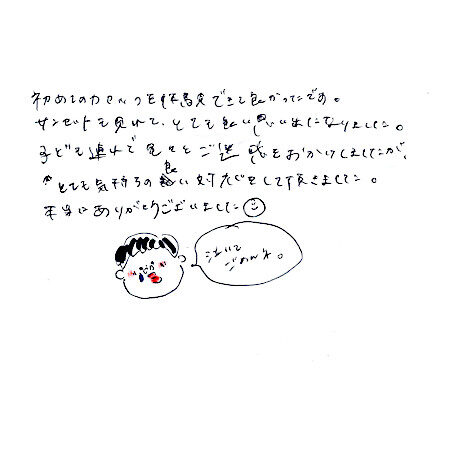 初めてのカヤックを体験できて良かったです。
サンセットも見れて、とても良い思い出になりました。
子ども連れで色々とご迷惑をおかけしましたが、
とても気持ちの良い対応をして頂きました。
本当にありがとうございました
泣いて
ごめんね。